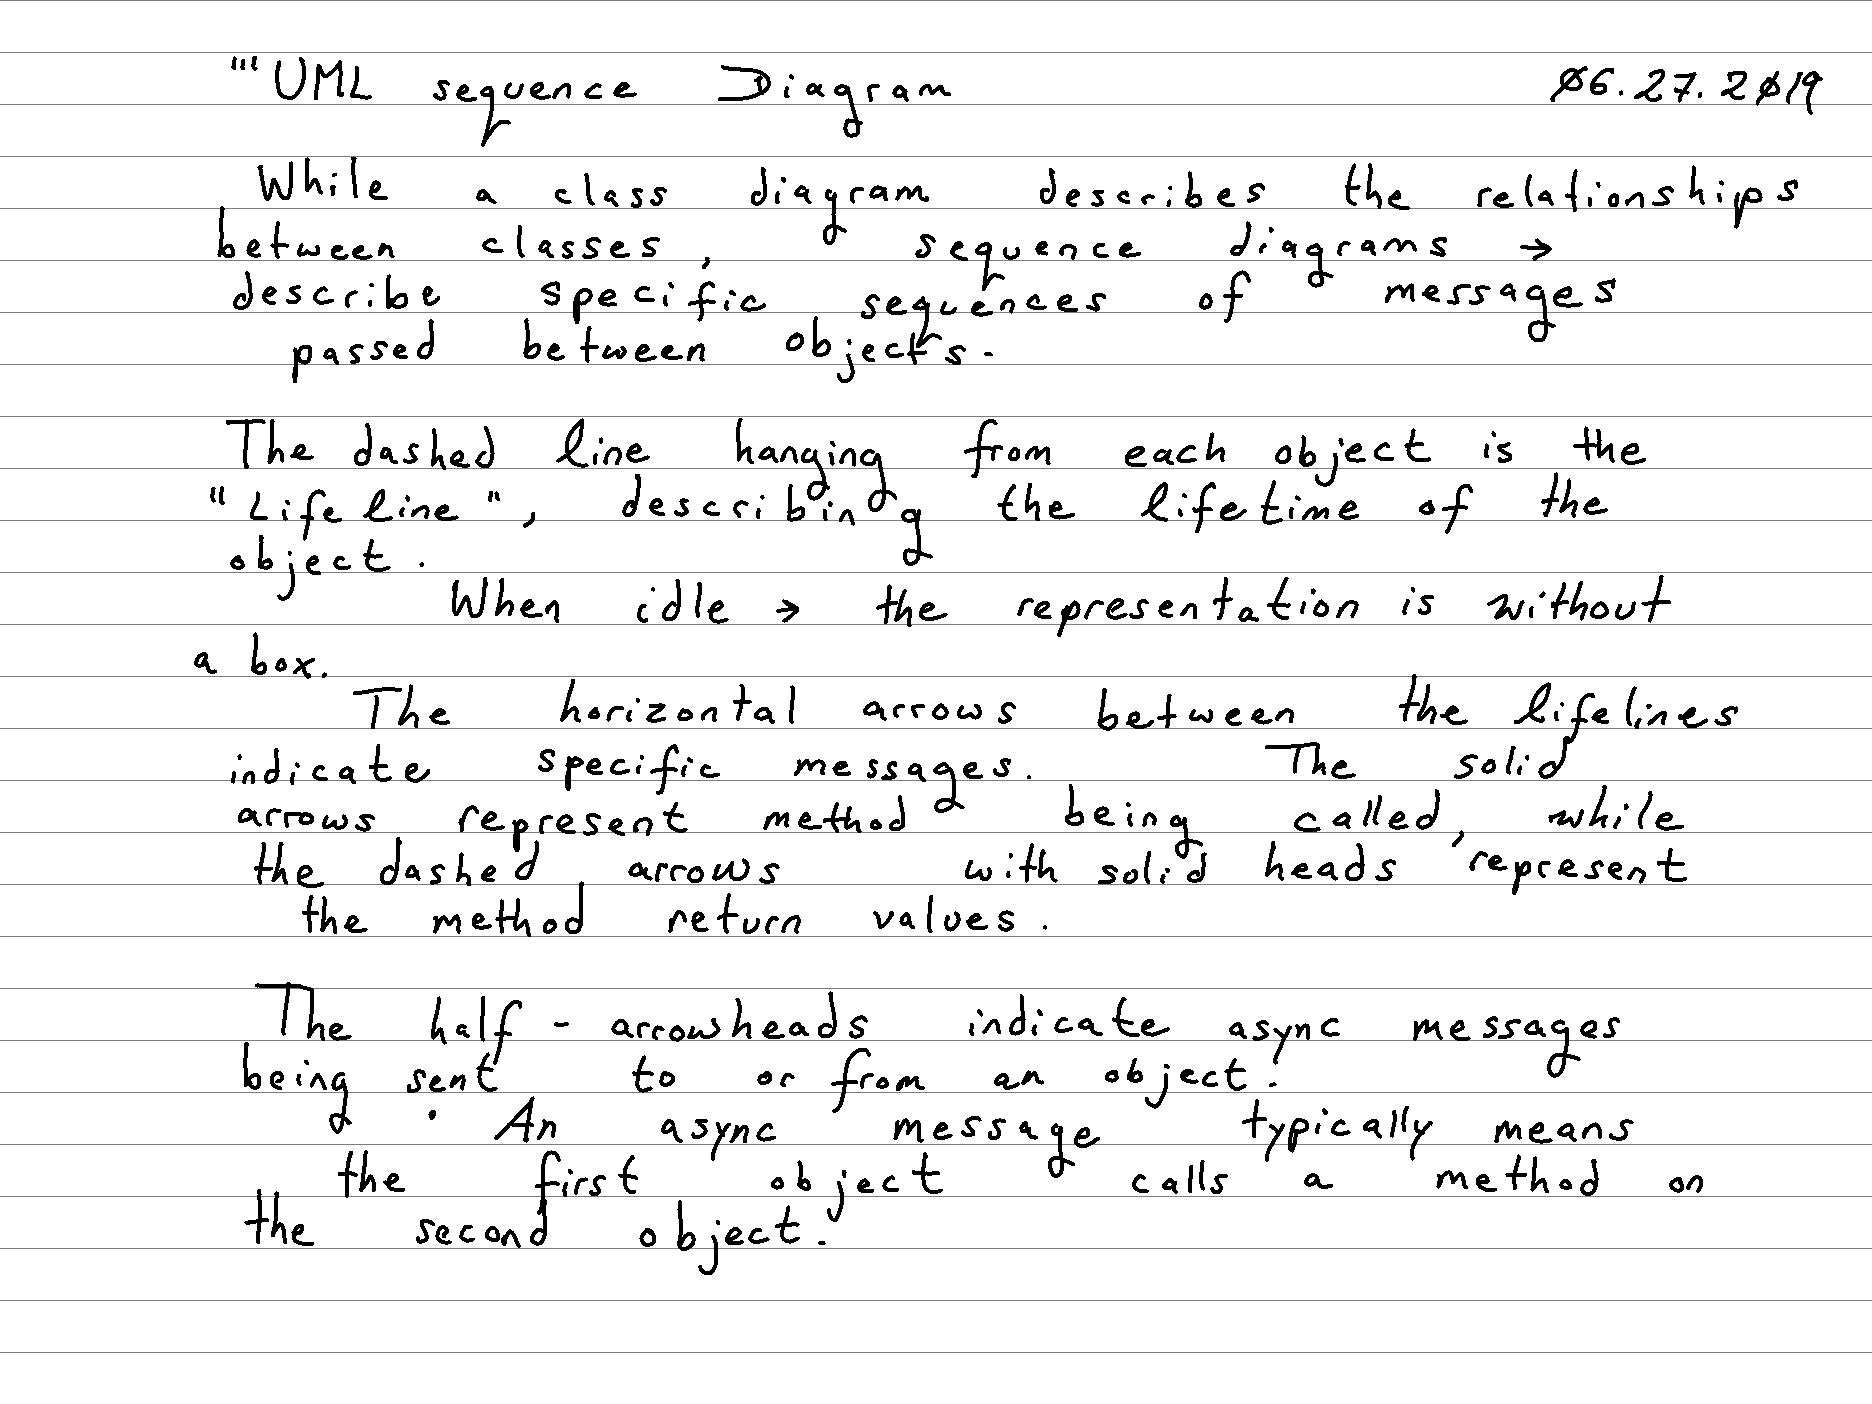 "'UML sequence Diagram 06.27.2019
While a class diagram describes the relationships
between classes, sequence diagrams →
describe specific sequences of messages
passed between objects.
The dashed line hanging from each object is the
"Life line", describing the lifetime of the
object.
When idle → the representation is without
a box.
The horizontal arrows between the lifelines
indicate specific messages. The solid
arrows represent method being called, while
the dashed arrows with solid heads represent
the method return values.
The half-arrowheads indicate async messages
being sent to or from an object.
· An async message typically means
the first object calls a method on
the second object.